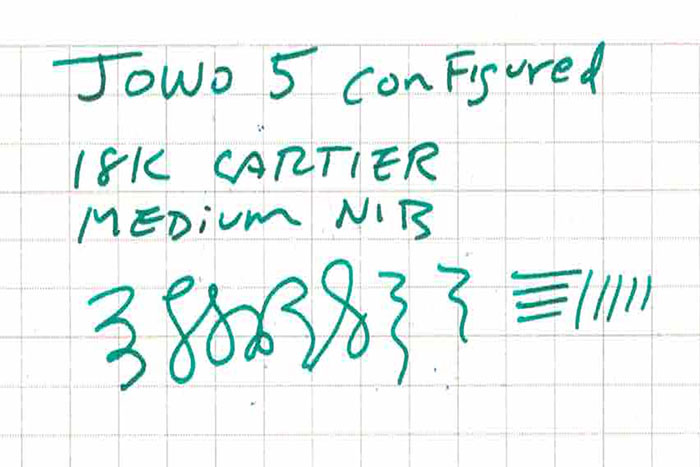 JOWO 5 configured
18K CARTIER
MEDIUM NIB